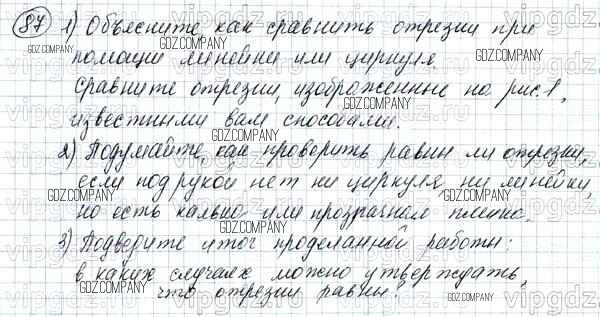 87 1) Объясните как сравнить отрезки при
помощи линейки или циркуля.
Сравните отрезки, изображенные на рис.1,
известными вам способами.
2) Подумайте, как проверить равны ли отрезки,
если под рукой нет ни циркуля, ни линейки,
но есть калька или прозрачная пленка.
3) Подведите итог проделанной работы:
в каких случаях можно утверждать,
что отрезки равны?
GDZ.COMPANY
vipgdz.ru